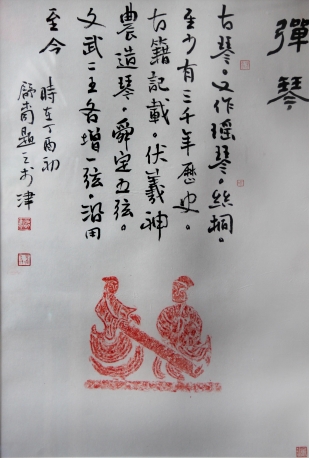 彈琴
古琴。又作瑶琴。丝桐。
至少有三千年歷史。
古籍記載。伏羲神
農造琴。舜定五弦。
文武二王各增一弦。沿用
至今
時在丁酉初
題之於津